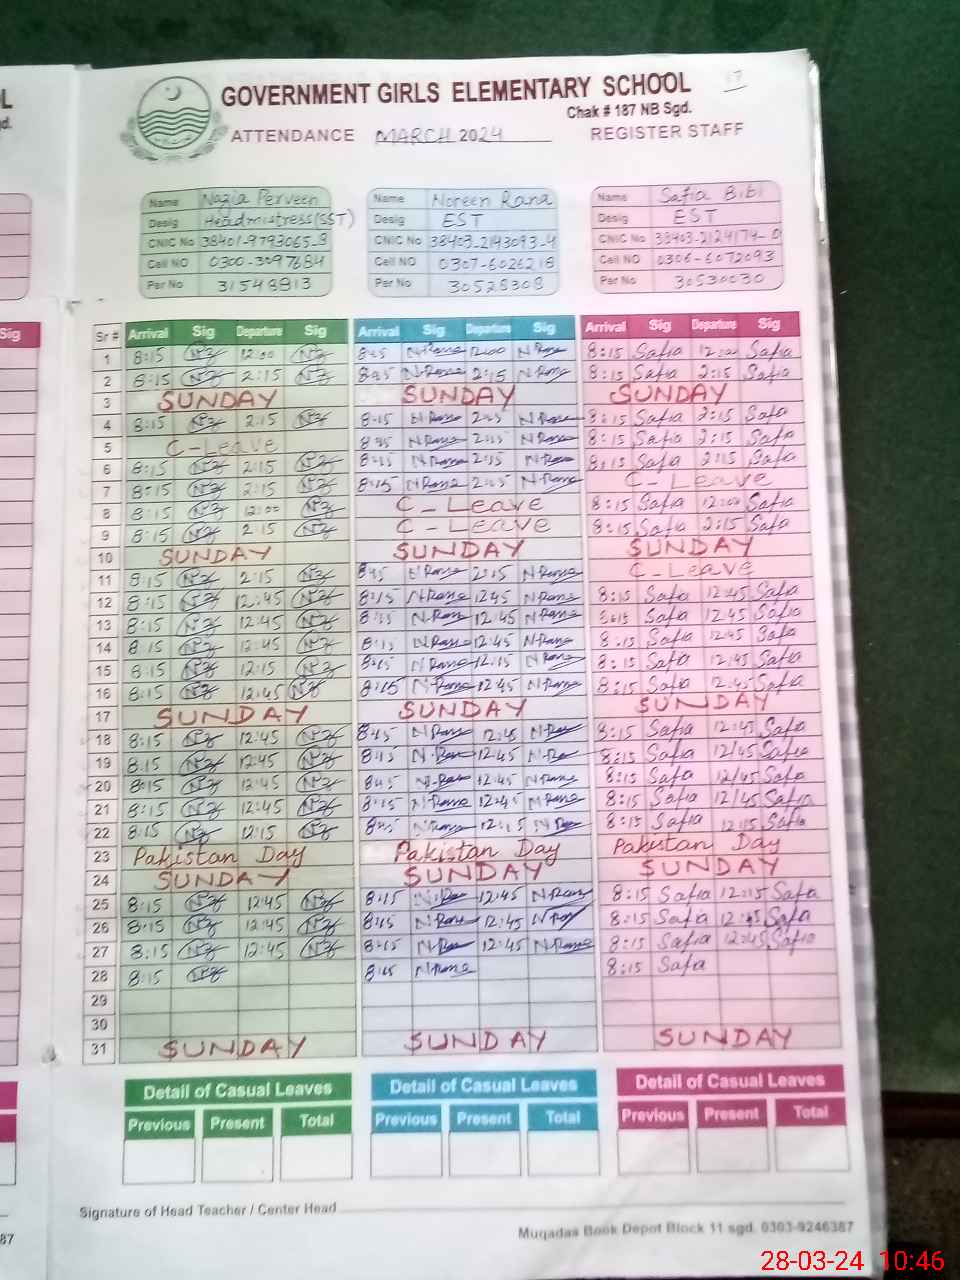 L
GOVERNMENT GIRLS ELEMENTARY SCHOOL
d.
Chak # 187 NB Sgd.
ATTENDANCE MARCH 2024 REGISTER STAFF
Name Nazia Perveen Name Noreen Rana Name Safia Bibi
Desig Headmistress(SST) Desig EST Desig EST
CNIC No CNIC No 38403-2143093-4 CNIC No
Cell NO Cell NO 0307-6026218 Cell NO 0306-6072093
Per No 31548813 Per No 30528308 Per No 30530030
Sig
Sr # Arrival Sig Departure Sig Arrival Sig Departure Sig Arrival Sig Departure Sig
1 8:15 12:00 8:15 N.Rana 12:00 N.Rana 8:15 Safia 12:00 Safia
2 8:15 2:15 8:15 N.Rana 2:15 N.Rana 8:15 Safia 2:15 Safia
3 SUNDAY SUNDAY SUNDAY
4 8:15 2:15 8:15 N.Rana 2:15 N.Rana 8:15 Safia 2:15 Safia
5 C-Leave 8:15 N.Rana 2:15 N.Rana 8:15 Safia 2:15 Safia
6 8:15 2:15 8:15 N.Rana 2:15 N.Rana 8:15 Safia 2:15 Safia
7 8:15 2:15 8:15 N.Rana 2:15 N.Rana C-Leave
8 8:15 12:00 C-Leave 8:15 Safia 12:00 Safia
9 8:15 2:15 C-Leave 8:15 Safia 2:15 Safia
10 SUNDAY SUNDAY SUNDAY
11 8:15 2:15 8:15 N.Rana 2:15 N.Rana C-Leave
12 8:15 12:45 8:15 N.Rana 12:45 N.Rana 8:15 Safia 12:45 Safia
13 8:15 12:45 8:15 N.Rana 12:45 N.Rana 8:15 Safia 12:45 Safia
14 8:15 12:45 8:15 N.Rana 12:45 N.Rana 8:15 Safia 12:45 Safia
15 8:15 12:15 8:15 N.Rana 12:15 N.Rana 8:15 Safia 12:45 Safia
16 8:15 12:45 8:15 N.Rana 12:45 N.Rana 8:15 Safia 12:45 Safia
17 SUNDAY SUNDAY SUNDAY
18 8:15 12:45 8:15 N.Rana 12:45 N.Rana 8:15 Safia 12:45 Safia
19 8:15 12:45 8:15 N.Rana 12:45 N.Rana 8:15 Safia 12/45 Safia
20 8:15 12:45 8:15 N.Rana 12:45 N.Rana 8:15 Safia 12/45 Safia
21 8:15 12:45 8:15 N.Rana 12:45 N.Rana 8:15 Safia 12/45 Safia
22 8:15 12:15 8:15 N.Rana 12:15 8:15 Safia 12:15 Safia
23 Pakistan Day Pakistan Day Pakistan Day
24 SUNDAY SUNDAY SUNDAY
25 8:15 12:45 8:15 N.Rana 12:45 N.Rana 8:15 Safia 12:15 Safia
26 8:15 12:45 8:15 N.Rana 12:45 N.Ray 8:15 Safia 12:45 Safia
27 8:15 12:45 8:15 N.Rana 12:45 N.Rana 8:15 Safia 12:45 Safia
28 8:15 8:15 N.Rana 8:15 Safia
29
30
31 SUNDAY SUNDAY SUNDAY
Detail of Casual Leaves Detail of Casual Leaves Detail of Casual Leaves
Previous Present Total Previous Present Total Previous Present Total
Signature of Head Teacher / Center Head
87
Muqadas Book Depot Block 11 sgd. 0303-9246387
28-03-24 10:46